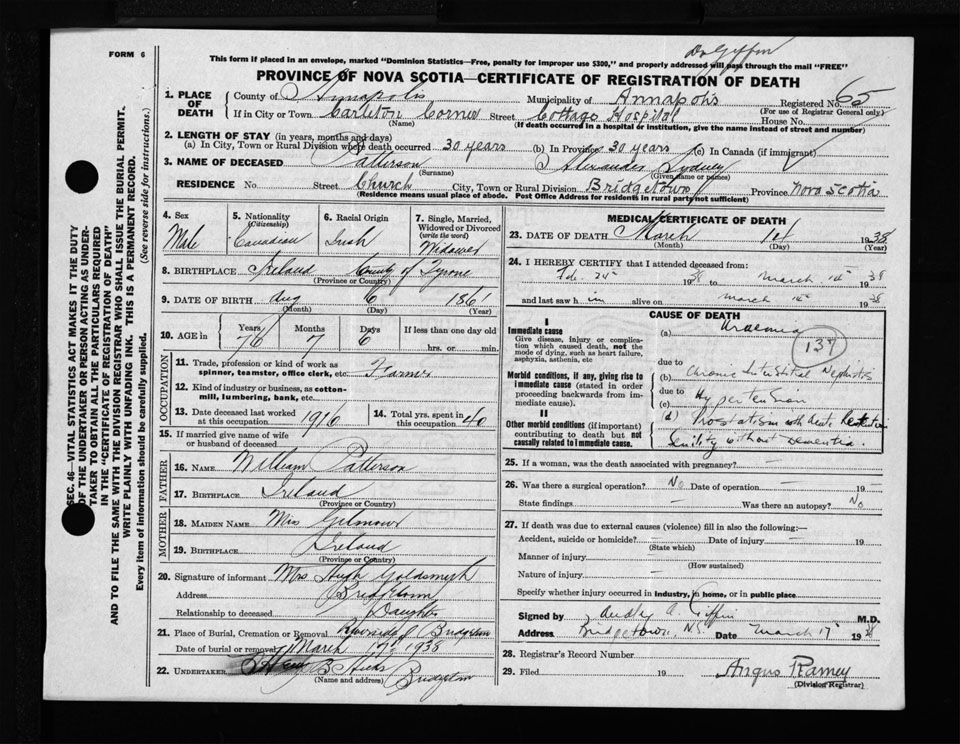 Dr Giffin
FORM 6
This form if placed in an envelope, marked “Dominion Statistics—Free, penalty for improper use $300,” and properly addressed will pass through the mail “FREE”
PROVINCE OF NOVA SCOTIA—CERTIFICATE OF REGISTRATION OF DEATH
SEC. 46—VITAL STATISTICS ACT MAKES IT THE DUTY
OF THE UNDERTAKER OR PERSON ACTING AS UNDER-
TAKER TO OBTAIN ALL THE PARTICULARS REQUIRED
IN THE “CERTIFICATE OF REGISTRATION OF DEATH”
AND TO FILE THE SAME WITH THE DIVISION REGISTRAR WHO SHALL ISSUE THE BURIAL PERMIT.
WRITE PLAINLY WITH UNFADING INK. THIS IS A PERMANENT RECORD.
Every item of information should be carefully supplied. (See reverse side for instructions.)
1. PLACE OF DEATH County of Annapolis Municipality of Annapolis Registered No. 65
(For use of Registrar General only)
If in City or Town Carleton Corner Street Cottage Hospital House No.
(Name) (If death occurred in a hospital or institution, give the name instead of street and number)
2. LENGTH OF STAY (in years, months and days)
(a) In City, Town or Rural Division where death occurred 30 years (b) In Province 30 years (c) In Canada (if immigrant)
3. NAME OF DECEASED Patterson Alexander Sydney
(Surname) (Given name or names)
RESIDENCE No Street Church City, Town or Rural Division Bridgetown Province Nova Scotia
(Residence means usual place of abode. Post Office Address for residents in rural parts not sufficient)
4. Sex Male
5. Nationality (Citizenship) Canadian
6. Racial Origin Irish
7. Single, Married, Widowed or Divorced (write the word) Widower
8. BIRTHPLACE Ireland County of Tyrone
(Province or Country)
9. DATE OF BIRTH Aug 6 1861
(Month) (Day) (Year)
10. AGE in Years 76 Months 7 Days 6 If less than one day
hrs. or min.
OCCUPATION
11. Trade, profession or kind of work as
spinner, teamster, office clerk, etc. Farmer
12. Kind of industry or business, as cotton-
mill, lumbering, bank, etc.
13. Date deceased last worked at this occupation 1916
14. Total yrs. spent in this occupation 40
15. If married give name of wife
or husband of deceased
FATHER
16. NAME William Patterson
17. BIRTHPLACE Ireland
(Province or Country)
MOTHER
18. MAIDEN NAME Miss Gilmour
19. BIRTHPLACE Ireland
(Province or Country)
20. Signature of informant Mrs Hugh Goldsmith
Address Bridgetown
Relationship to deceased Daughter
21. Place of Burial, Cremation or Removal Riverside Bridgetown
Date of burial or removal March 17th 1938
22. UNDERTAKER B Hicks Bridgetown
(Name and address)
MEDICAL CERTIFICATE OF DEATH
23. DATE OF DEATH March 1938
(Month) (Day) (Year)
24. I HEREBY CERTIFY that I attended deceased from:
Feb. 25th 1938 to March 38
and last saw him alive on March 1938
CAUSE OF DEATH
I
Immediate cause
Give disease, injury or complica-
tion which caused death, not the
mode of dying, such as heart failure,
asphyxia, asthenia, etc
(a) Uraemia
137
due to
Morbid conditions, if any, giving rise to
immediate cause (stated in order
proceeding backwards from im-
mediate cause).
(b) Chronic Interstitial Nephritis
due to
(c) Hypertension
II
Other morbid conditions (if important)
contributing to death but not
causally related to immediate cause.
(d) Prostatism with acute Retention
Senility without Dementia.
25. If a woman, was the death associated with pregnancy? —
26. Was there a surgical operation? No Date of operation — 19 —
State findings — Was there an autopsy? No
27. If death was due to external causes (violence) fill in also the following:—
Accident, suicide or homicide? — Date of injury — 19
(State which)
Manner of injury —
(How sustained)
Nature of injury —
Specify whether injury occurred in industry, in home, or in public place
Signed by Audley A. Giffin M.D.
Address Bridgetown, N.S. Date March 17th 1938
28. Registrar's Record Number
29. Filed 19 Angus Ramey
(Division Registrar)